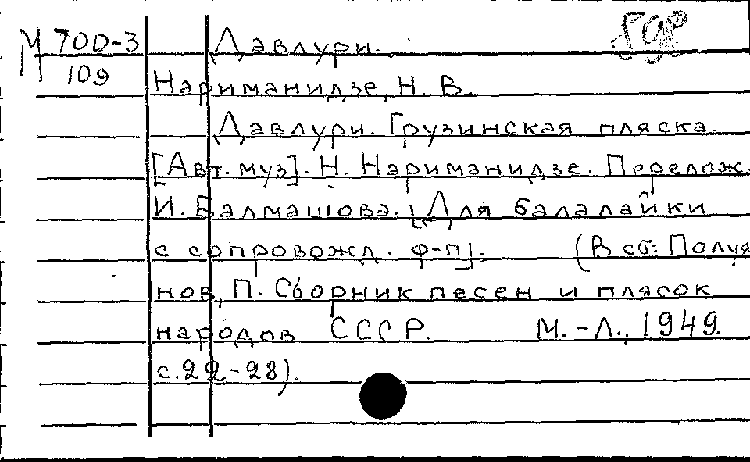 М 700-3 Давлури.
109 Нариманидзе, Н. В.
Давлури. Грузинская пляска.
[Авт. муз]. Н. Нариманидзе. Перелож.
И. Балмашова. [Для балалайки
с сопровожд. ф-п]. (В сб: Полуя
нов, П. Сборник песен и плясок
народов СССР. М.-Л., 1949.
с. 22-28).